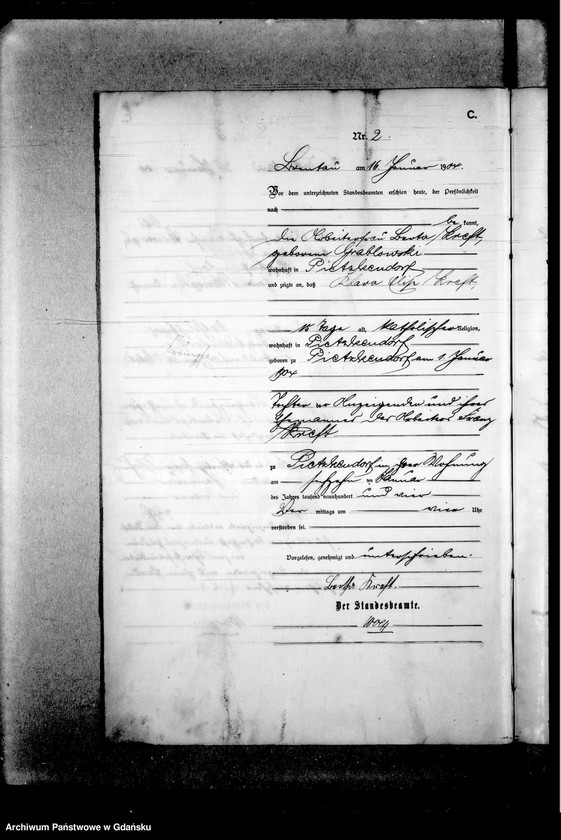 C.
Nr. 2.
Brentau am 16 Januar 1904.
Vor dem unterzeichneten Standesbeamten erschien heute, der Persönlichkeit
nach
be kannt,
die Arbeiterfrau Berta Kreft,
geborene Grablowski
wohnhaft in Pietzkendorf
und zeigte an, daß Klara Kreft,
15 Tage alt, katholischer Religion,
wohnhaft in Pietzkendorf
geboren zu Pietzkendorf am 1. Januar
1904
Tochter der Anzeigenden und ihres
Ehemannes des Arbeiters Franz
Kreft
zu Pietzkendorf in der Wohnung
am sechzehn ten Januar
des Jahres tausend neunhundert und vier
Vor mittags um vier Uhr
verstorben sei.
Vorgelesen, genehmigt und unterschrieben.
Bertha Kreft.
Der Standesbeamte.
Archiwum Państwowe w Gdańsku